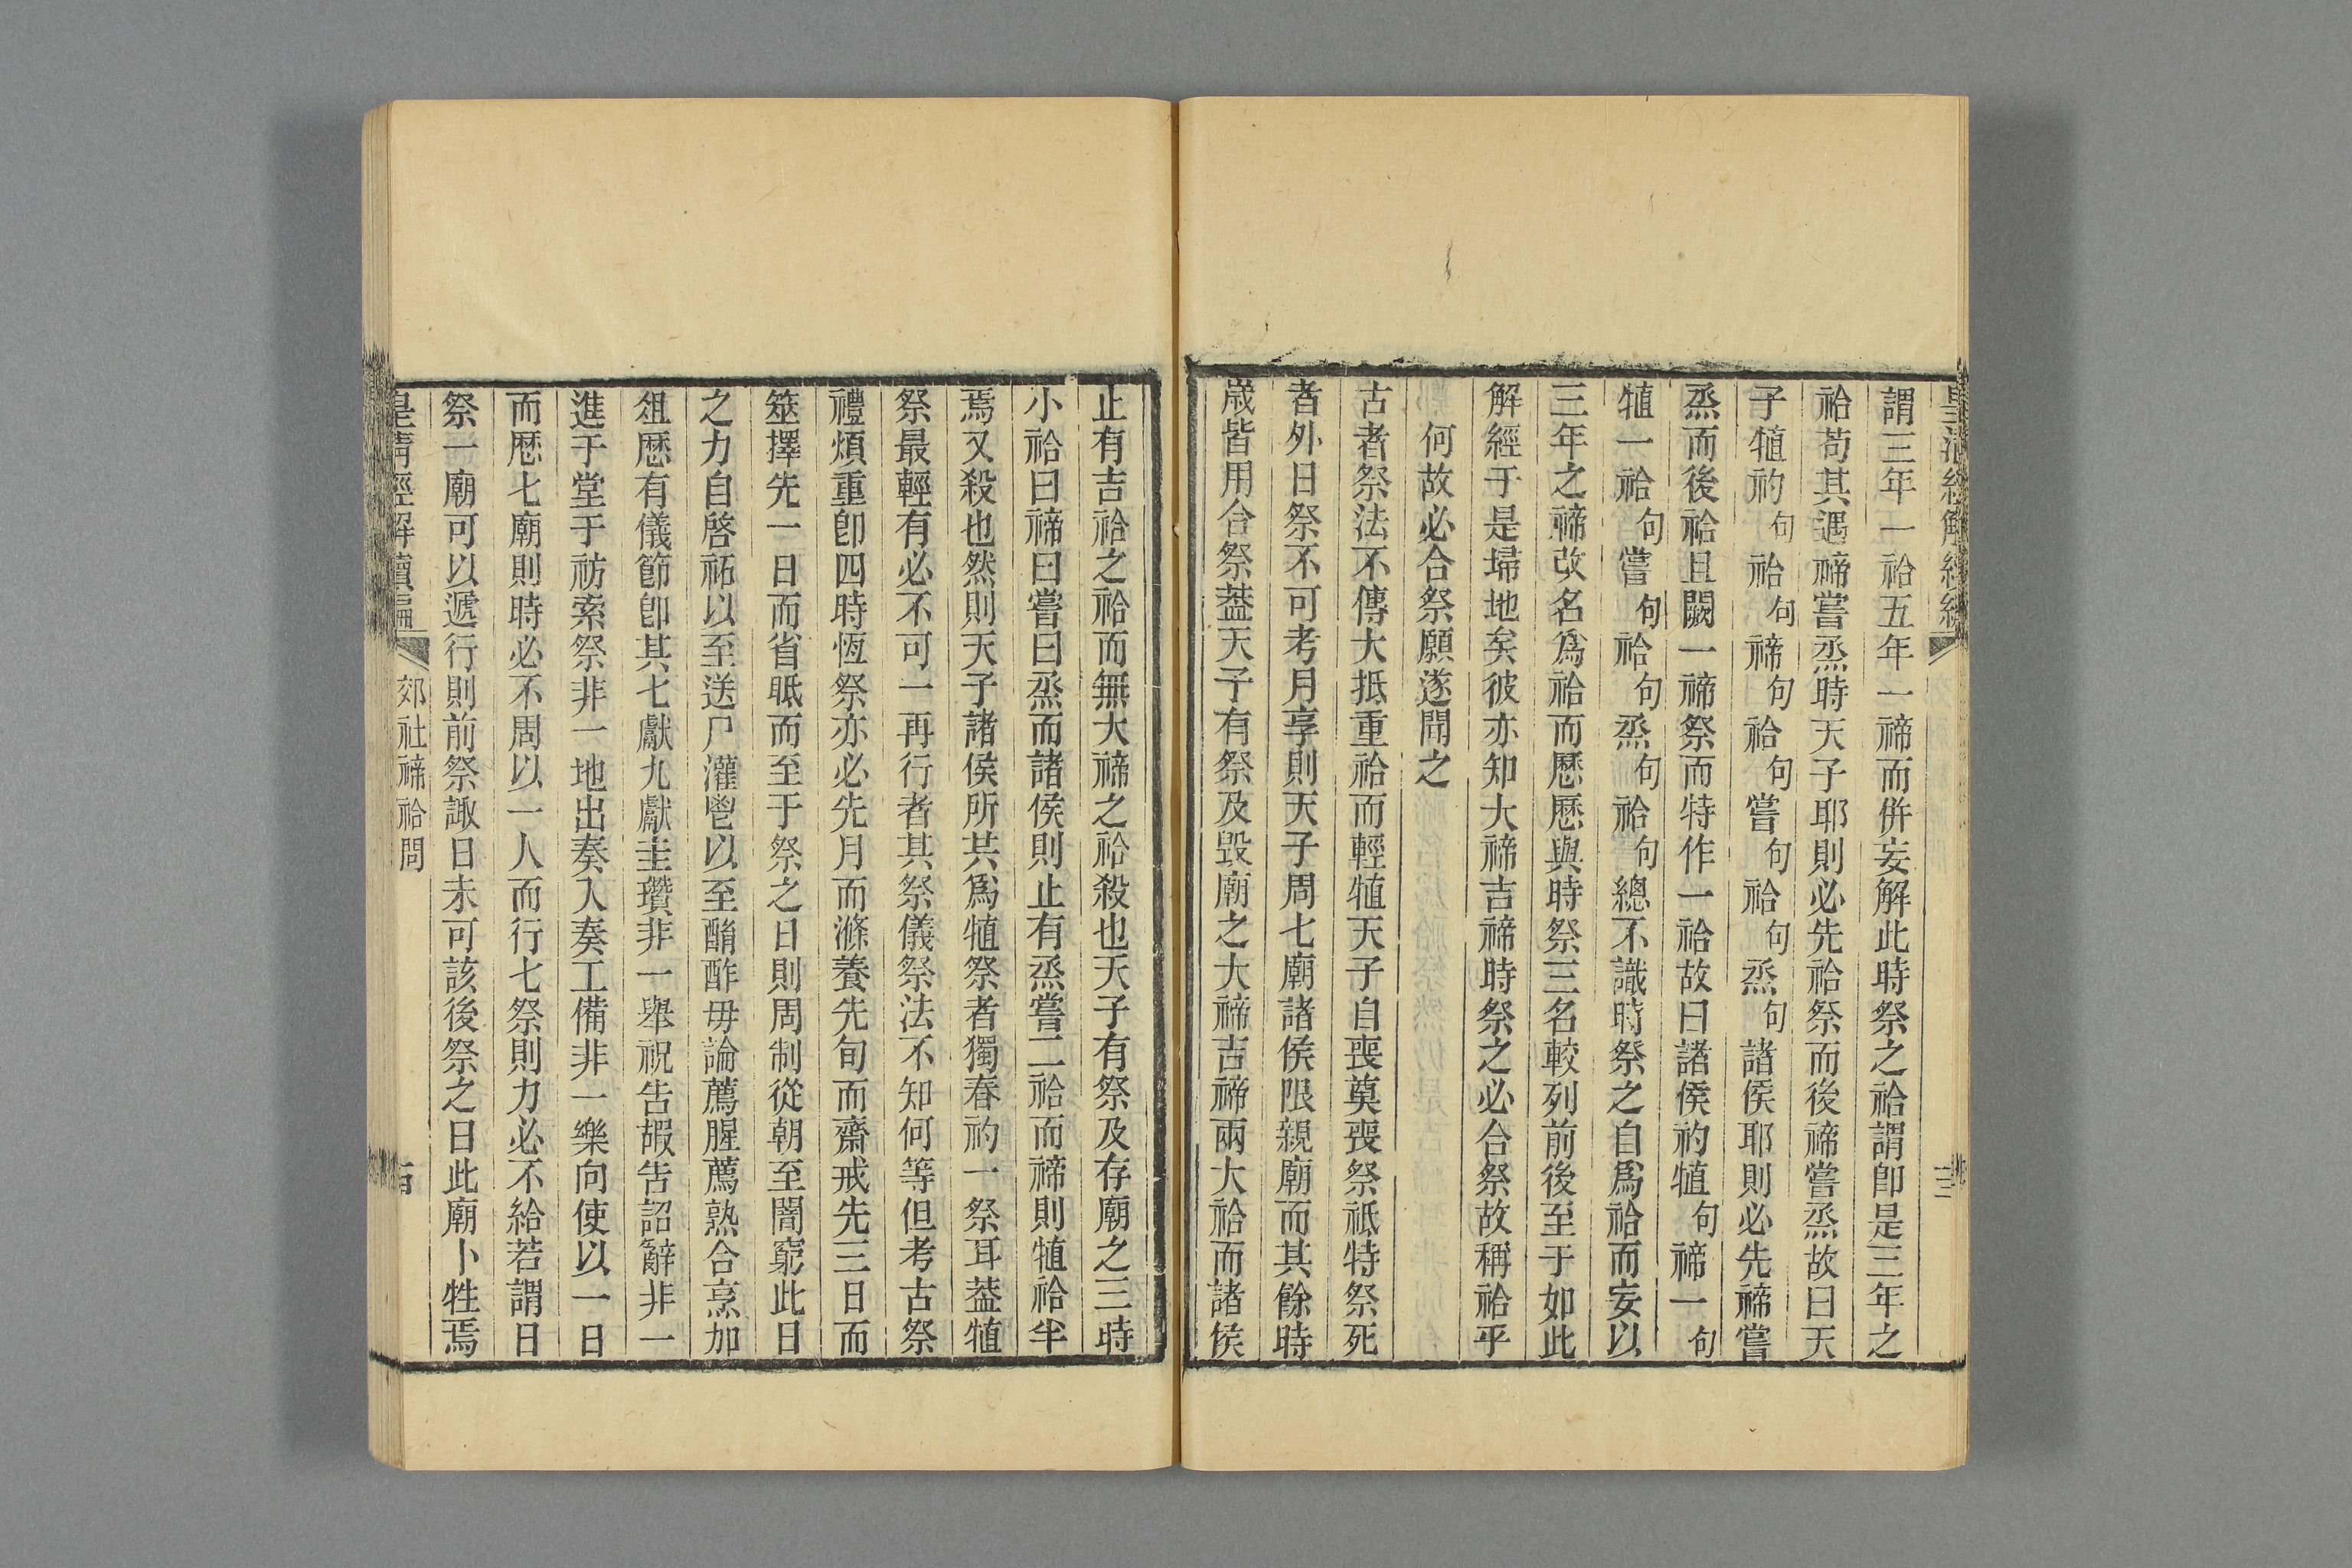 謂三年一祫五年一禘而併妄解此時祭之祫謂卽是三年之
祫苟其遇禘嘗烝時天子耶則必先祫祭而後禘嘗烝故曰天
子犆礿句祫句禘句祫句嘗句祫句烝句諸侯耶則必先禘嘗
烝而後祫且闕一禘祭而特作一祫故曰諸侯礿犆句禘一句
犆一祫句嘗句祫句烝句祫句總不識時祭之自爲祫而妄以
三年之禘改名爲祫而歷歷與時祭三名較列前後至于如此
解經于是埽地矣彼亦知大禘吉禘時祭之必合祭故稱祫乎
何故必合祭願遂聞之
古者祭法不傳大抵重祫而輕犆天子自喪奠喪祭祗特祭死
者外日祭不可考月享則天子周七廟諸侯限親廟而其餘時
嵗皆用合祭葢天子有祭及毀廟之大禘吉禘兩大祫而諸侯
止有吉祫之祫而無大禘之祫殺也天子有祭及存廟之三時
小祫曰禘曰嘗曰烝而諸侯則止有烝嘗二祫而禘則犆祫半
焉又殺也然則天子諸侯所共爲犆祭者獨春礿一祭耳葢犆
祭最輕有必不可一再行者其祭儀祭法不知何等但考古祭
禮煩重卽四時恆祭亦必先月而滌養先旬而齋戒先三日而
筮擇先一日而省眡而至于祭之日則周制從朝至闇窮此日
之力自啓祏以至送尸灌鬯以至酳酢毋論薦腥薦熟合烹加
俎歷有儀節卽其七獻九獻圭瓚非一舉祝告嘏告詔辭非一
進于堂于祊索祭非一地出奏入奏工備非一樂向使以一日
而歷七廟則時必不周以一人而行七祭則力必不給若謂日
祭一廟可以遞行則前祭諏日未可該後祭之日此廟卜牲焉
皇淸經解續編 郊社禘祫問